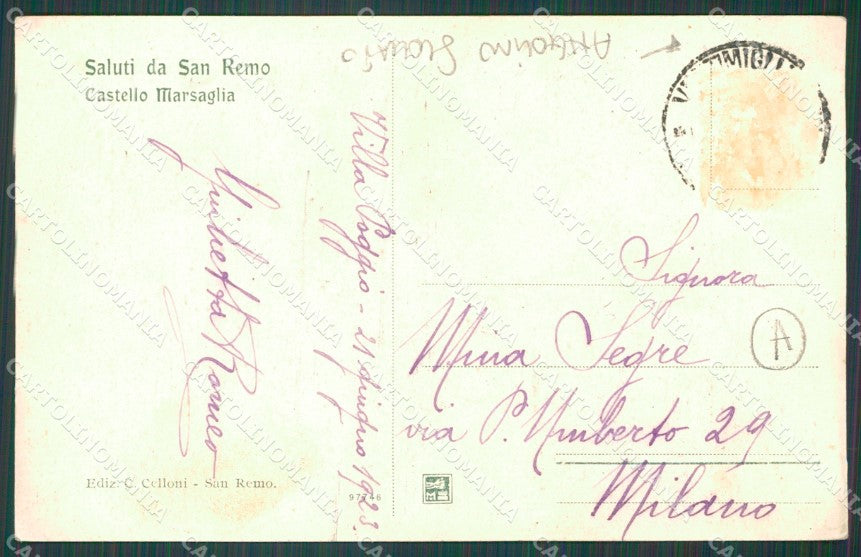 Saluti da San Remo
Castello Marsaglia
Giulietta Romeo
Villa Poggio - 21 giugno 1923.
VENTIMIGLIA
Signora
Mina Segre
via P. Umberto 29
Milano
A
Ediz. C. Celloni - San Remo.
97746
CARTOLINOMANIA